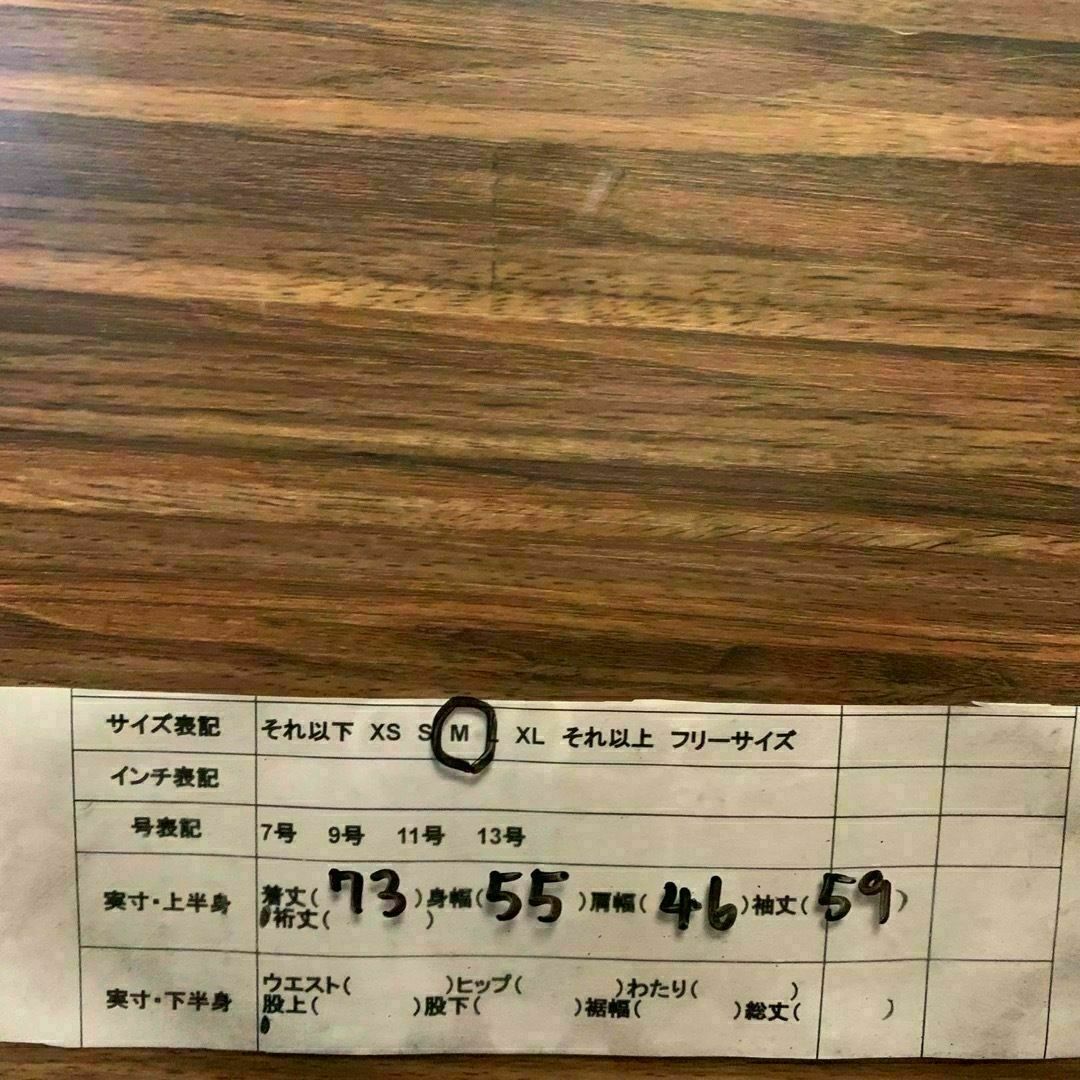 サイズ表記 それ以下 XS S M L XL それ以上 フリーサイズ
インチ表記
号表記 7号 9号 11号 13号
実寸・上半身 着丈(73)身幅(55)肩幅(46)袖丈(59)
裄丈( )
実寸・下半身 ウエスト( )ヒップ( )わたり( )
股上( )股下( )裾幅( )総丈( )